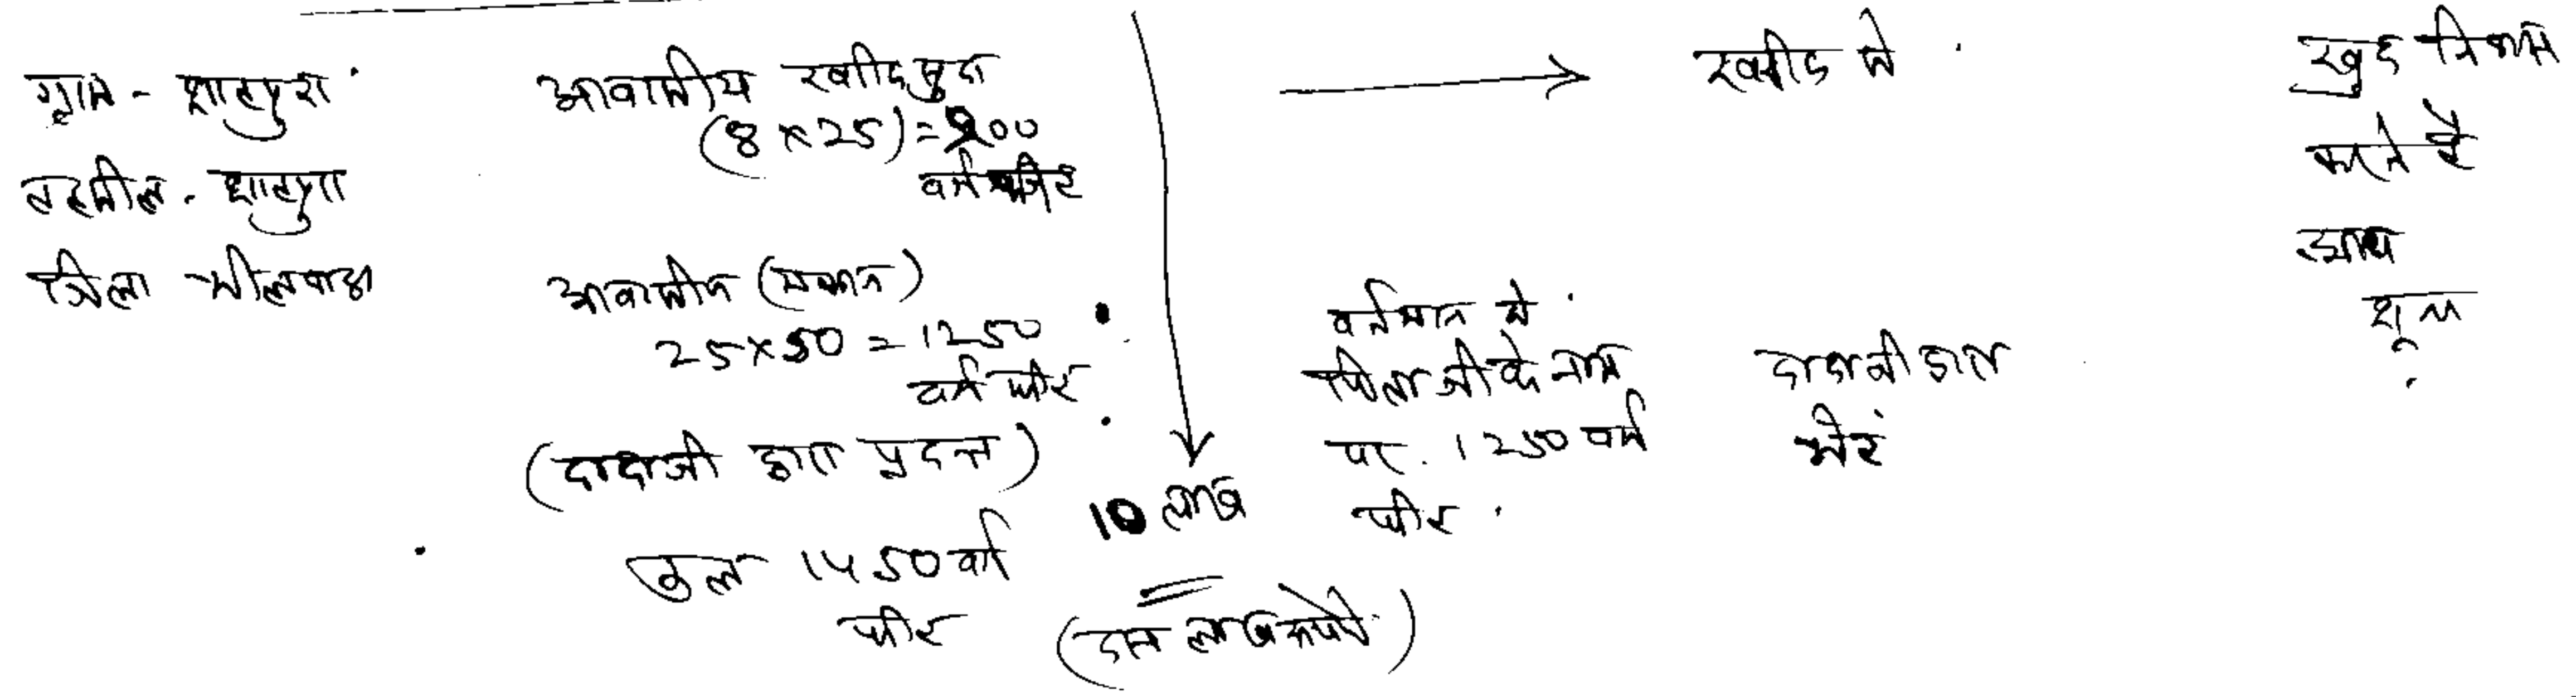 ग्राम - शाहपुरा
तहसील - शाहपुरा
जिला भीलवाडा
आवासीय खरीदसुदा
(8 x 25) = 200
वर्ग फीट
आवासीय (मकान)
25x50 = 1250
वर्ग फीट
(दादाजी द्वारा प्रदत्त)
कुल 1450 वर्ग
फीट
10 लाख
(दस लाख रूपये)
खरीद से
वर्तमान में
पिताजी के नाम
पर 1250 वर्ग
फीट
दादाजी द्वारा
भेंट
खुद निवास
करते है
आय
शून्य